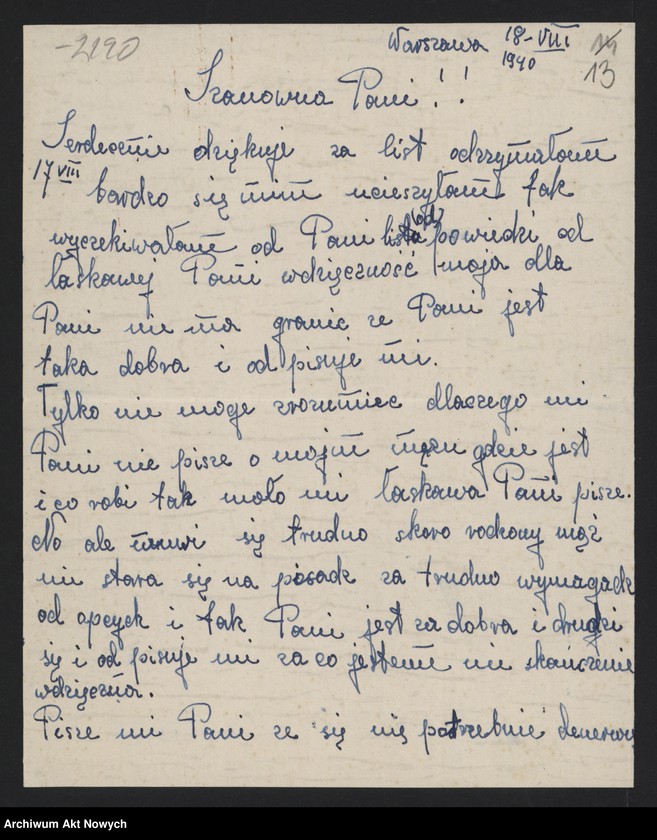 -2190
Warszawa 18-VIII
1940
14
13
Szanowna Pani!!
Serdecznie dziękuje za list odrzymałam
17 VIII bardzo się nim ucieszyłam tak
wyczekiwałam od Pani lista odpowiedki od
łaskawej Pani wdzięczność moja dla
Pani nie ma granic ze Pani jest
taka dobra i od pisuje mi.
Tylko nie moge zrozumiec dlaczego mi
Pani nie pisze o mojim męzu gdzie jest
i co robi tak mało mi łaskawa Pani pisze.
No ale się trudno skoro rodzony mąż
nie stara się na pisadz za trudno wymagadz
od opcyck i tak Pani jest za dobra i drudzi
się i od pisuje mi za co jestem nie skończenie
wdzięczna.
Pisze mi Pani ze się nie potrzebnie denerwu
Archiwum Akt Nowych